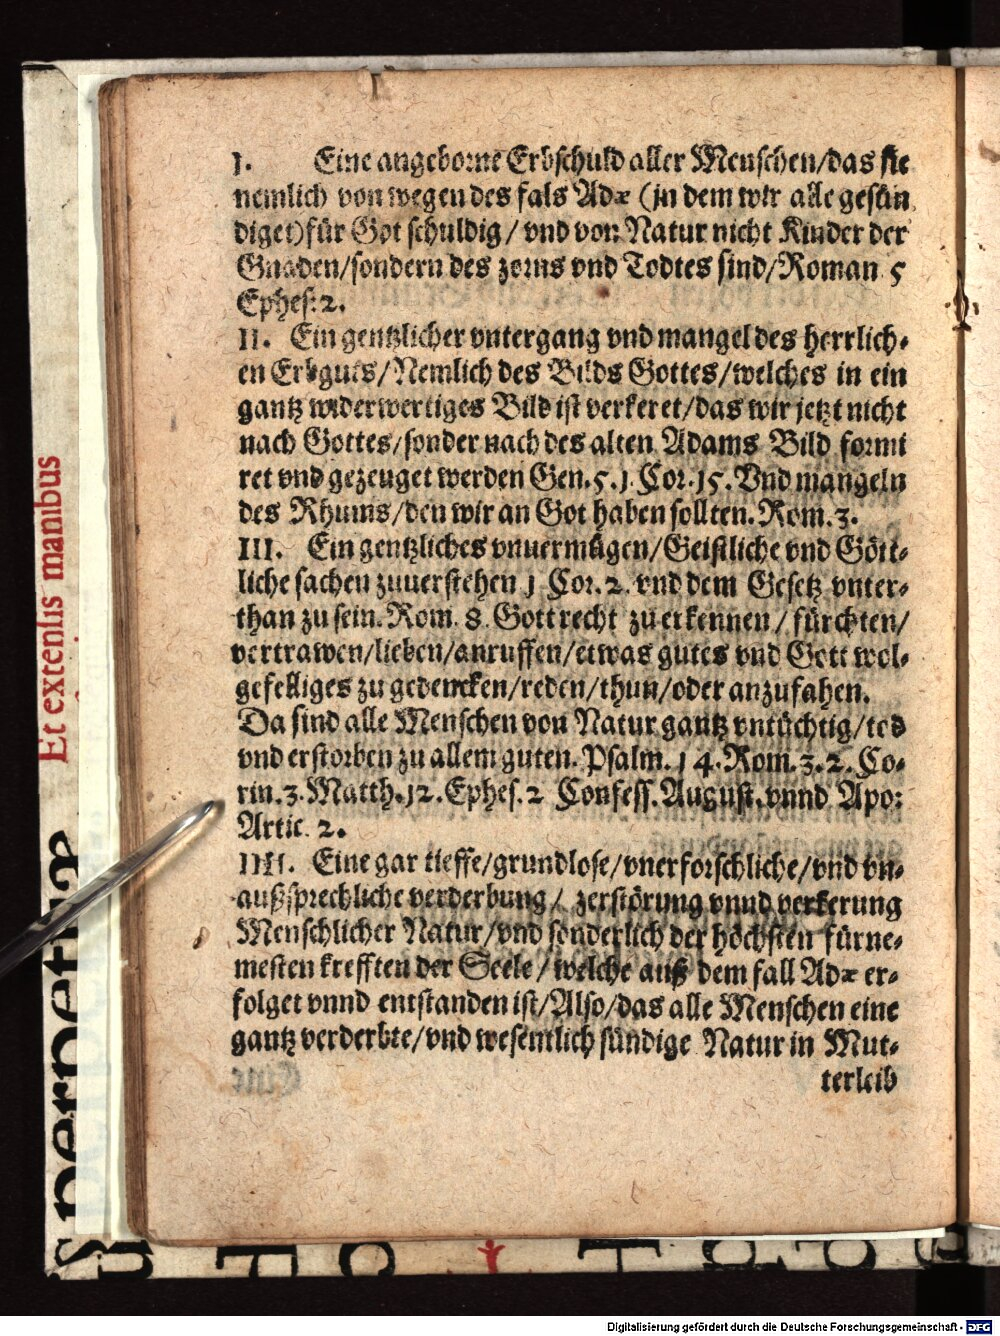 I. Eine angeborne Erbschuld aller Menschen/das sie
nemlich von wegen des fals Adæ (in dem wir alle gesün
diget) für Got schuldig / vnd von Natur nicht Kinder der
Gnaden/sondern des zorns vnd Todtes sind/Roman 5
Ephes: 2.
II. Ein gentzlicher vntergang vnd mangel des herrlich-
en Erbguts/Nemlich des Bilds Gottes/welches in ein
gantz widerwertiges Bild ist verkeret/das wir jetzt nicht
nach Gottes/sonder nach des alten Adams Bild formi
ret vnd gezeuget werden Gen. 5. 1. Cor. 15. Vnd mangeln
des Rhums/den wir an Got haben sollten. Rom. 3.
III. Ein gentzliches vnuermügen/Geistliche vnd Gött-
liche sachen zuuerstehen 1 Cor. 2. vnd dem Gesetz vnter-
than zu sein. Rom. 8. Gott recht zu erkennen / fürchten/
vertrawen/lieben/anruffen/etwas gutes vnd Gott wol-
gefelliges zu gedencken/reden/thun/oder anzufahen.
Da sind alle Menschen von Natur gantz vntüchtig/tod
vnd erstorben zu allem guten. Psalm. 14. Rom. 3. 2. Co-
rin. 3. Matth. 12. Ephes. 2 Confess. August. vnnd Apo:
Artic. 2.
IIII. Eine gar tieffe/grundlose/vnerforschliche/vnd vn-
außsprechliche verderbung / zerstörung vnud verkerung
Menschlicher Natur/vnd sonderlich der höchsten fürne-
mesten krefften der Seele / welche auß dem fall Adæ er-
folget vnnd entstanden ist/Also/das alle Menschen eine
gantz verderbte/vnd wesentlich sündige Natur in Mut-
terleib
Et extensis manibus
Digitalisierung gefördert durch die Deutsche Forschungsgemeinschaft - DFG